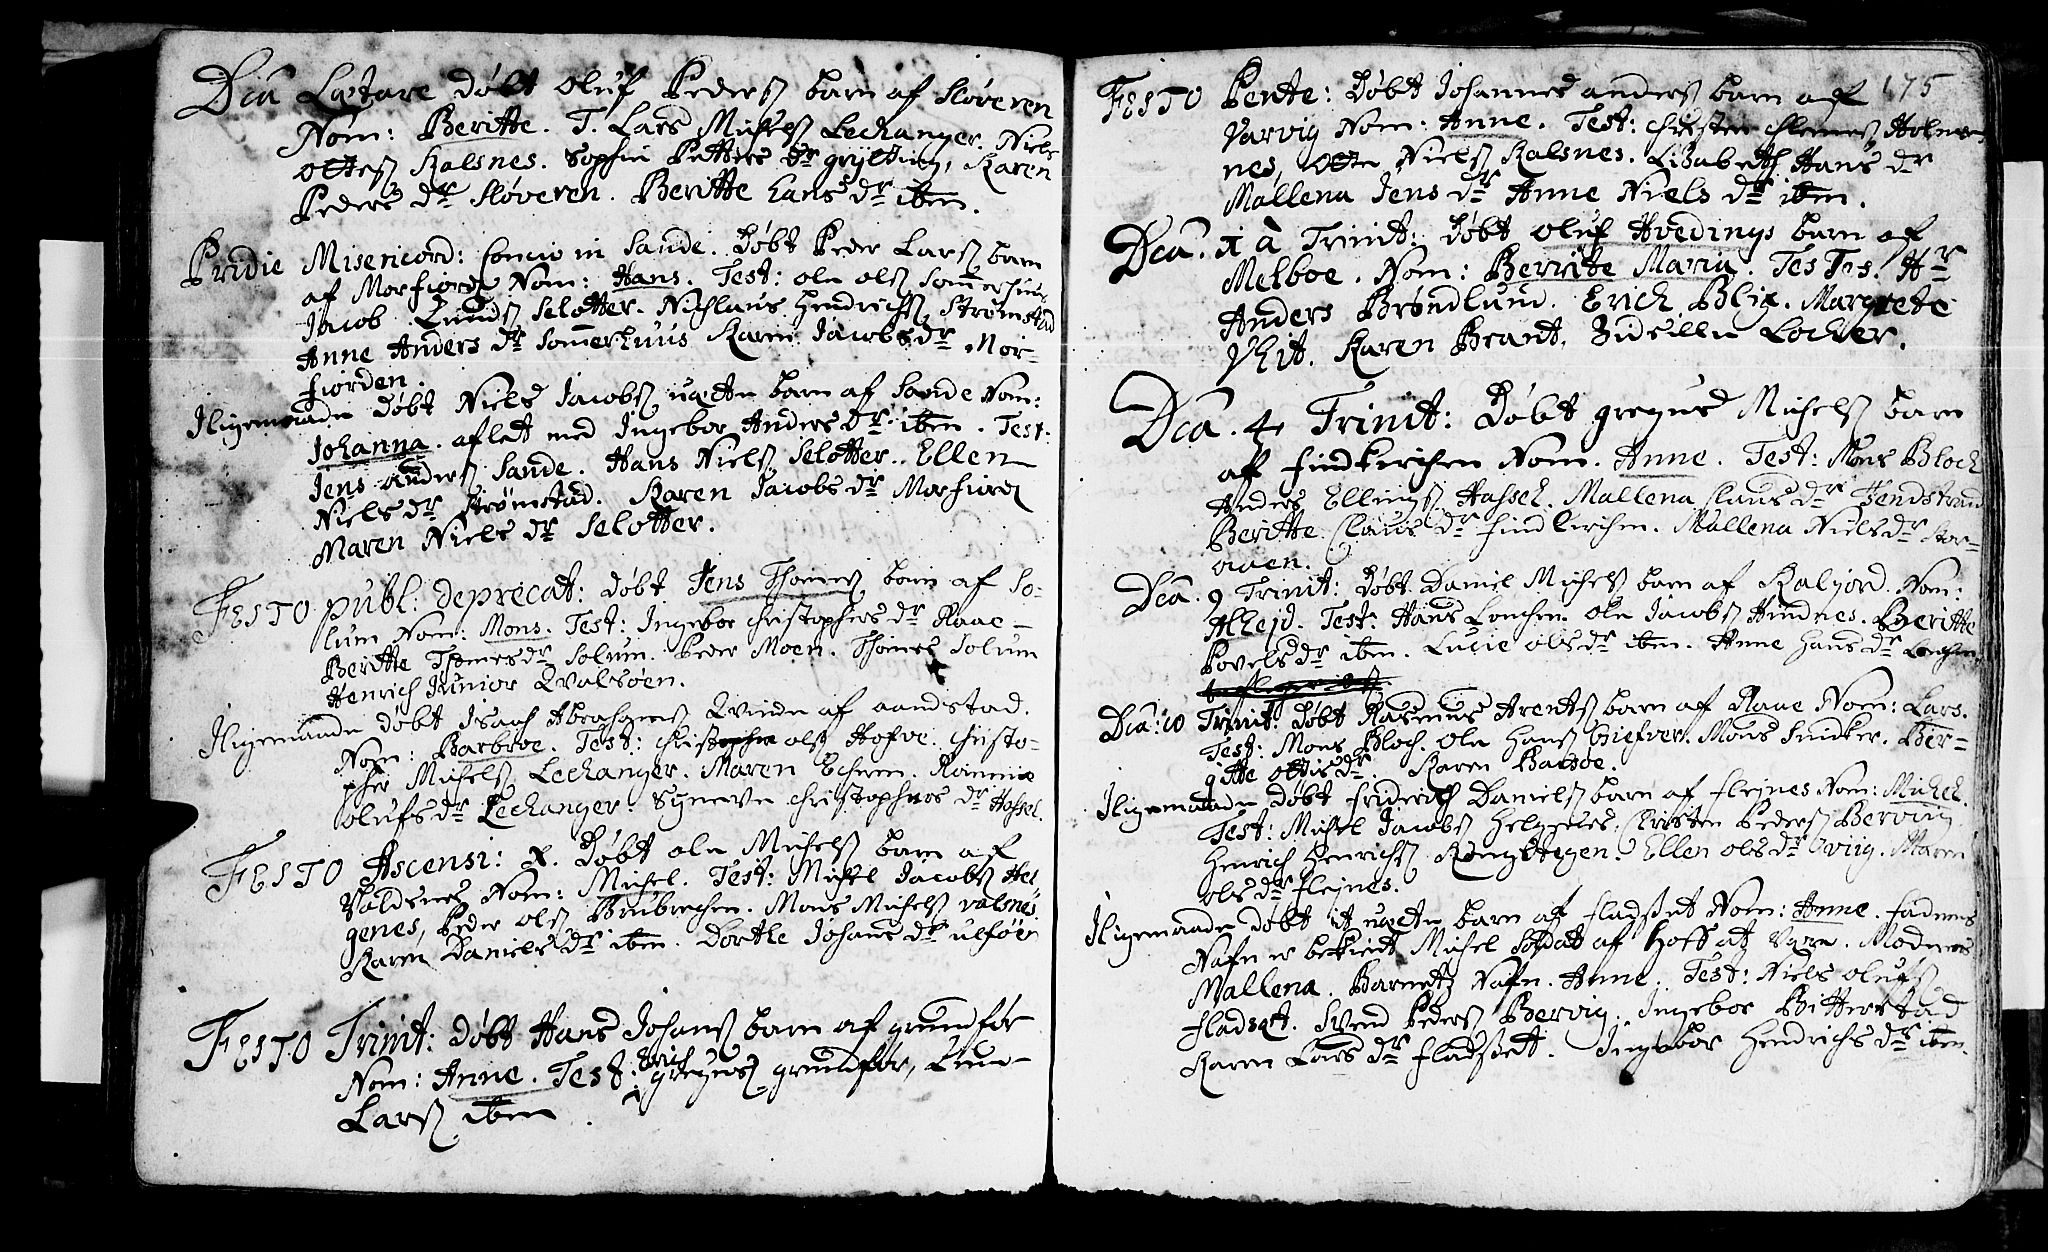 Dca Lætare døbt Oluf Peders barn af Sløveren
Nom: Beritte. T. Lars Michels Lechanger. Niels
Ottes Kalsnes. Sophie Petters dr grytting, Karen
Peders dr Sløveren. Beritte Hans dr ibm.
Pridie Misericord: Concio in Sande. Døbt Peder Lars barn
af Morfiord Nom: Hans. Test: Ole Ols Somerhuus
Jacob Lunds Selotter. Nichlaus Hendrichs Strømstad
Anne Anders dr Somerhuus Karen Jacobs dr Mor-
fiorden.
Iligemaade døbt Niels Jacobs uægte barn af Sande Nom:
Johanna. aflet med Ingebor Anders dr ibm. Test:
Jens Anders Sande. Hans Niels Selotter. Ellen
Niels dr Strømstad. Karen Jacobs dr Morfiord
Maren Niels dr Selotter.
FESTO publ: deprecat: døbt Jens Thomes barn af So-
lum Nom: Mons. Test: Ingebor Christophers dr Raae-
Beritte Thomes dr Solum. Peder Moen. Thomes Solum
Henrich Junior Qvalsøen.
Iligemaade døbt Isach Abrahams Qvinde af aandstad.
Nom: Barbroe. Test: Ols Hofve. Christo-
pher Michels Lechanger. Maren
Olufs dr Lechanger. Syneve Christophers dr Hassel.
FESTO Ascensi: X. Døbt Ole Michels barn af
Valdsnes Nom: Michel. Test: Michel Jacobs Hel-
genes, Peder Ols Brubrechen. Mons Michels valsnes
Karen Daniels dr ibm. Dorthe Johans dr ulføen
FESTO Trinit: døbt Hans Johans barn af grundfør
Nom: Anne. Test: Erich gregus grundfør,
Lars ibm
175
FESTO Pente: Døbt Johannes anders barn af
Varvig Nom: Anne. Test: Christen Clemes Holme-
nes, Otte Niels Kalsnes. Lisabeth Hans dr
Mallena Jens dr Anne Niels dr ibm.
Dca. 1 à Trinit: Døbt Oluf Hvedings barn af
Melboe. Nom: Berrite Maria. Testes. Hr
Anders Brøndlund. Erich Blix. Margrete
Vhit. Karen Brant. Zidsille Locher.
Dca. 4 Trinit: Døbt gregus Michels barn
af Findkirchen Nom. Anne. Test: Mons Bloch
Anders Ellings Hassel. Mallena Claus dr Sendstrand
Beritte Claus dr Findkirchen. Mallena Niels dr Stor-
Dca. 9 Trinit: Døbt Daniel Michels barn af Kaljord. Nom:
Alhejd. Test: Hans Lonchen. Ole Jacobs Hindnes. Beritte
Povels dr ibm. Lucie Ols dr ibm. Anne Hans dr
Dca: 10 Trinit: Døbt Rasmus Arents barn af Raae Nom: Lars.
Test: Mons Bloch. Ole Hans Giefver. Mons Snicker. Ber-
gitte Ottis dr. Karen Barboe.
Iligemaade døbt Friderich Daniels barn af Flejnes Nom: Michel.
Test: Michel Jacobs Helgenes. Christen Peders Berviig
Henrich Henrichs Ringstegen. Ellen Ols dr Oviig. Maren
Ols dr Flejnes.
Iligemaade døbt it uægte barn af Fladset Nom: Anne. Fadrens
Nafn er bekiendt Michel Soldat af Hoff at være. Modrens
Mallena. Barnetz Nafn. Anne. Test: Niels Olufs
Fladset. Svend Peders Bervig. Ingebor Bitterstad
Karen Lars dr Fladset. Ingebor Hendrichs dr ibm.